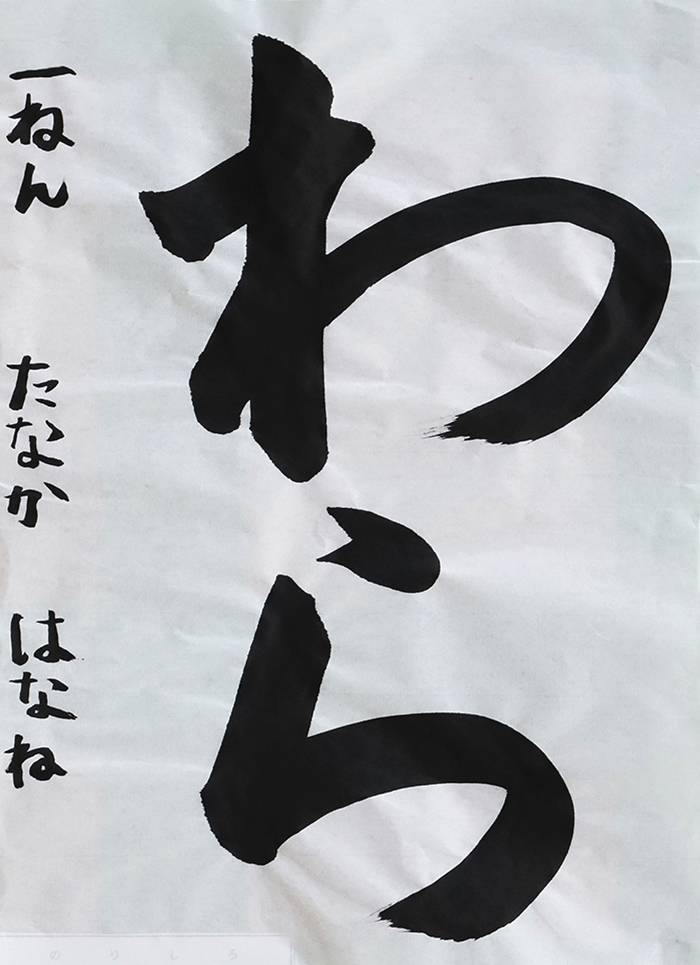 わら
一ねん たなか はなね
のりしろ